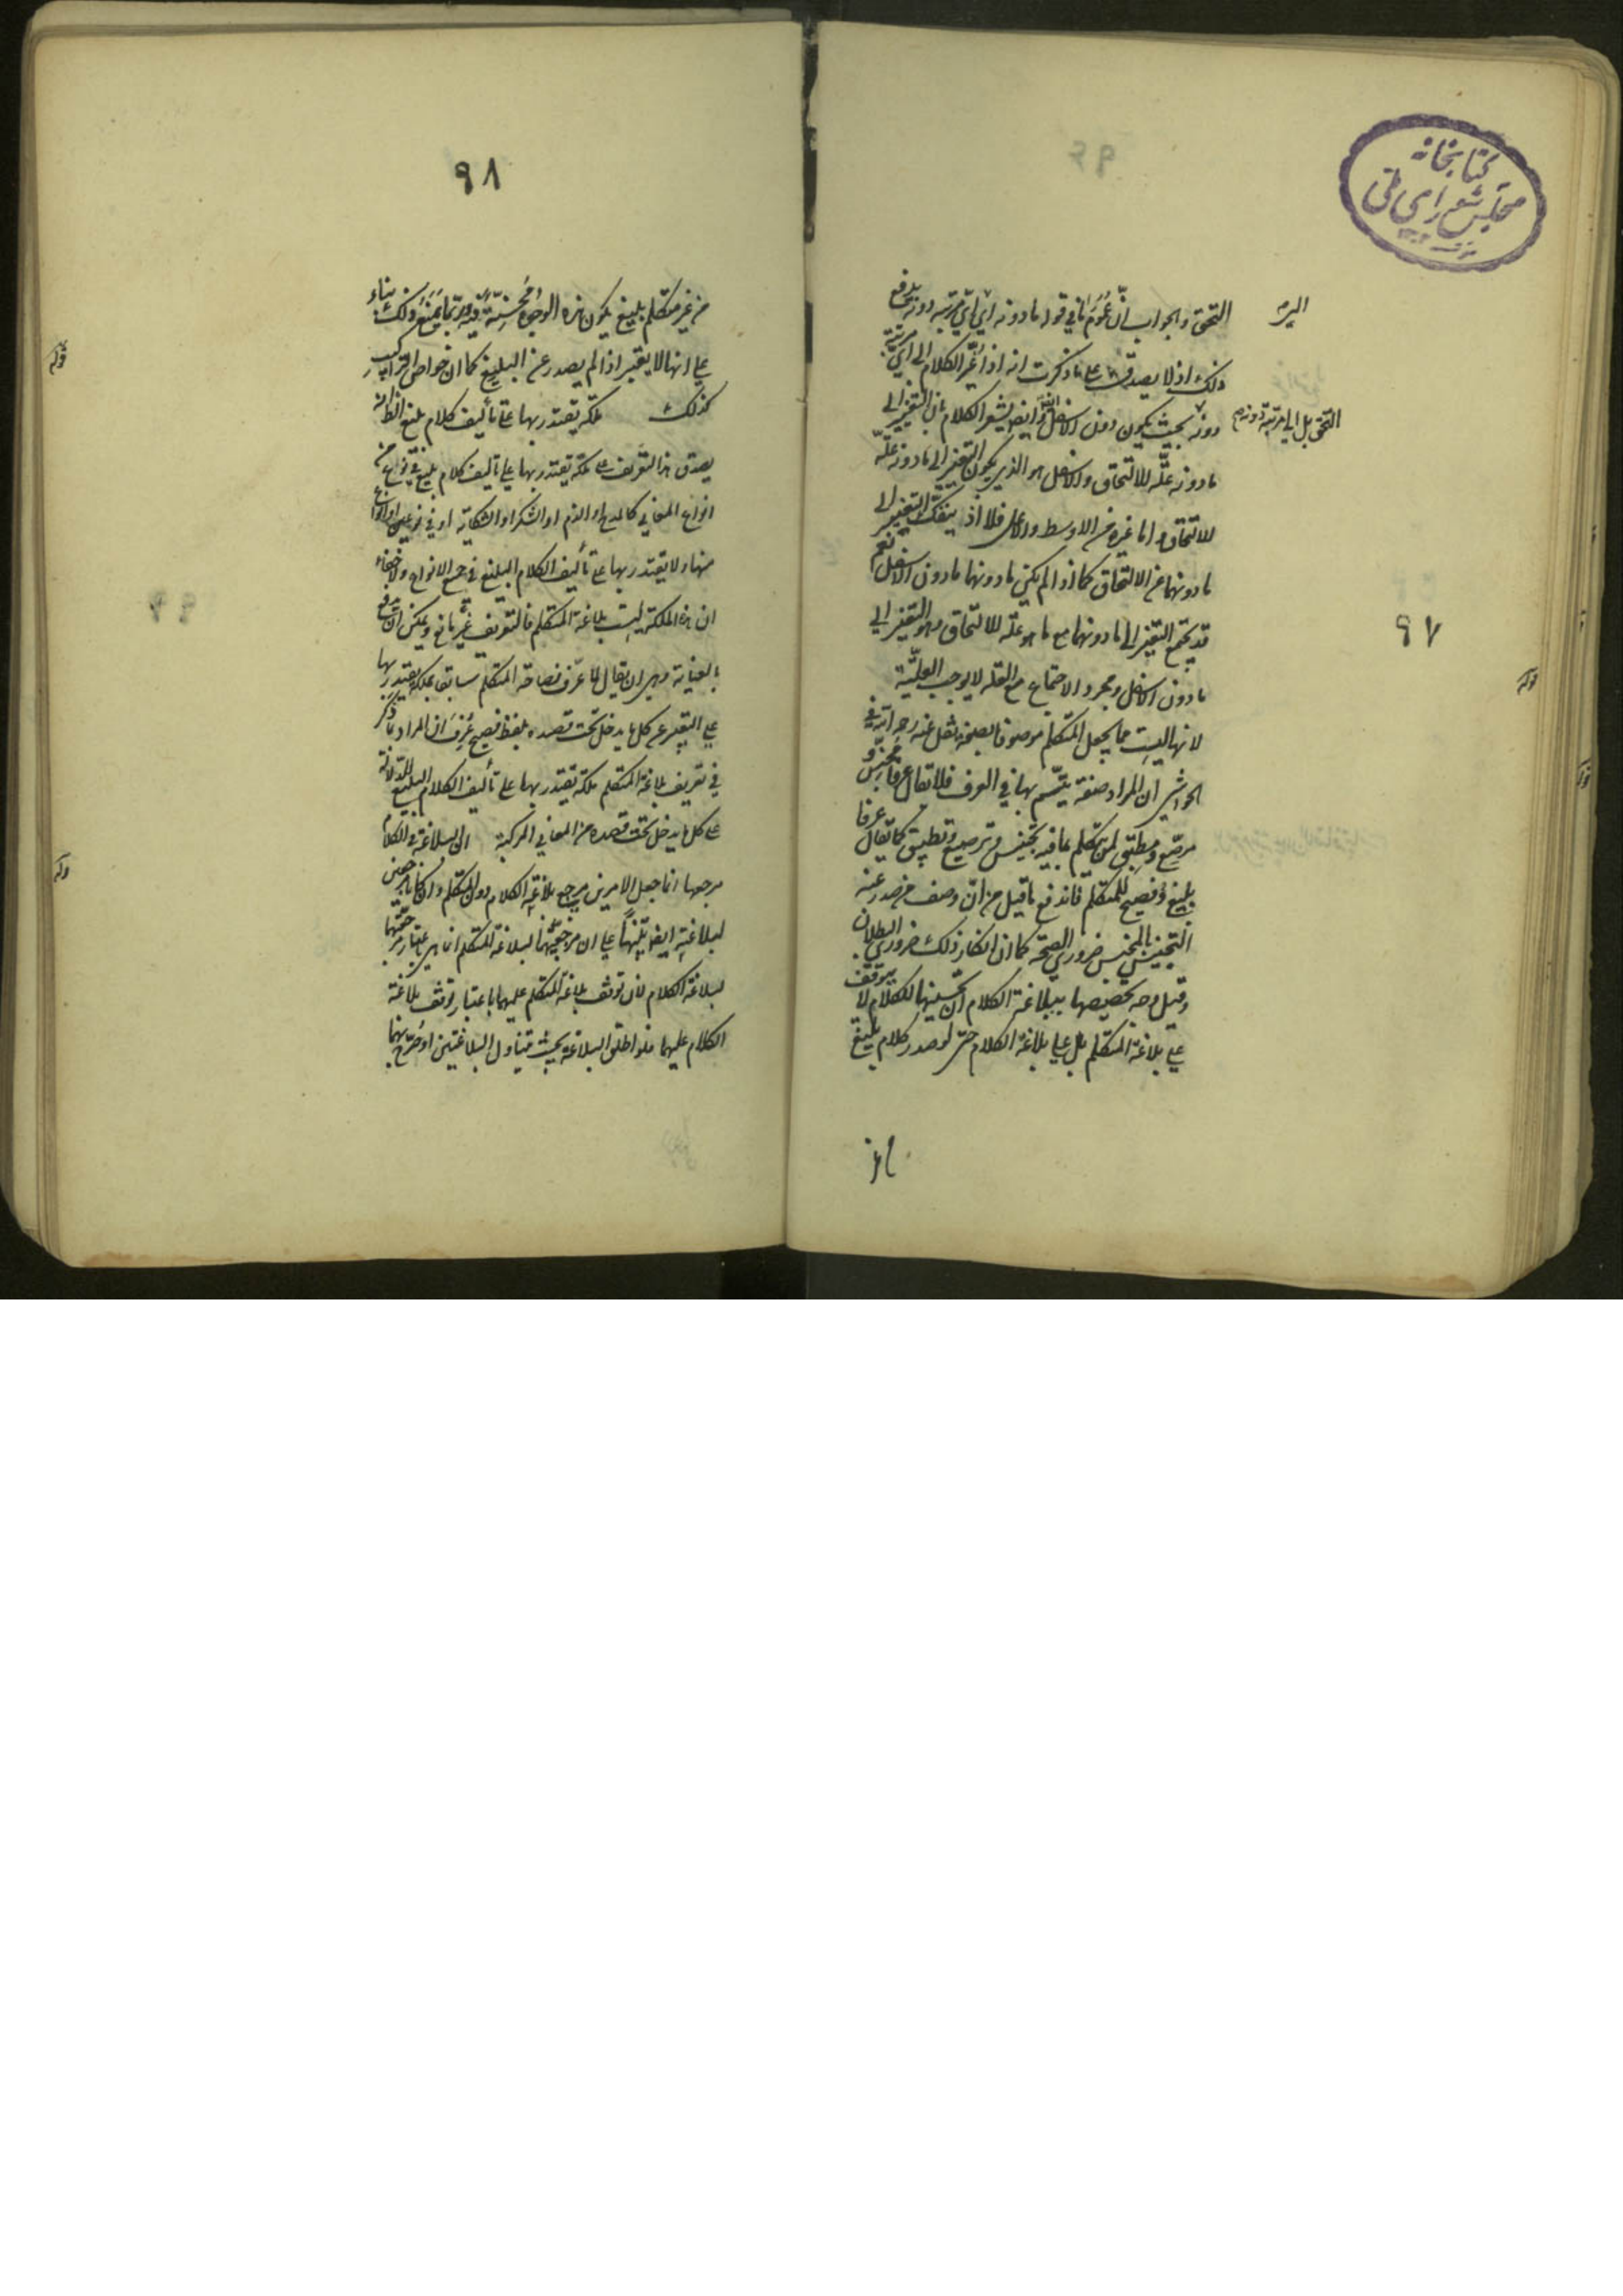 كتابخانه
مجلس شورای ملی
٩٧
التحق والجواب انّ عموم ما في قوله ما دونه اي اي مرتبة دونه يدفع
ذلك اذ لا يصدق على ما ذكرت انه اذا غيّر الكلام الى اي مرتبة
التحق بل الى مرتبة دونه
دونه بحيث يكون دون الاسفل وايضا يشعر الكلام بان التغيير الى
ما دونه علّة للالتحاق والاسفل هو الذي يكون التغيير الى ما دونه علّة
للالتحاق واما غيره من الاوسط والاعلى فلا اذ ينفكّ التغيير الى
ما دونهما عن الالتحاق كما اذا لم يكن ما دونهما ما دون الاسفل نعم
قد يجتمع التغيير الى ما دونهما مع ما هو علّة للالتحاق وهو التغيير الى
ما دون الاسفل ومجرد الاجتماع مع العلة لا يوجب العلّيّة
لانها ليست مما يجعل المتكلم موصوفا بصفة نقل عنه رحمه الله في
الحواشي ان المراد صفة يتّسم بها في العرف فلا يقال عرفا مجنّس و
مرصّع ومطبّق لمن تكلم بما فيه تجنيس وترصيع وتطبيق كما يقال عرفا
بليغ وفصيح للمتكلم فاندفع ما قيل من انّ وصف من صدر عنه
التجنيس بالمجنس ضروري الصحة كما ان انكار ذلك ضروري البطلان
وقيل وجه تخصيصها ببلاغة الكلام انّ تحسينها للكلام لا يتوقف
على بلاغة المتكلم بل على بلاغة الكلام حتى لو صدر كلام بليغ
٩٨
من غير متكلم بليغ يكون هذه الوجوه محسّنة فيه وربّما يمنع ذلك بناء
على انها لا يعتبر اذا لم يصدر عن البليغ كما ان خواص التراكيب
قوله
كذلك ملكة يقتدر بها على تأليف كلام بليغ الظ انه
يصدق هذا التعريف على ملكة يقتدر بها على تأليف كلام بليغ في نوع من
انواع المعاني كالمدح او الذم او الشكر او الشكاية او في نوعين او انواع
منها ولا يقتدر بها على تأليف الكلام البليغ في جميع الانواع ولا خفاء
ان هذه الملكة ليست بلاغة المتكلم فالتعريف غير مانع ويمكن ان يدفع
بالعناية وهي ان يقال لما عرّف فصاحة المتكلم سابقا بملكة يقتدر بها
على التعبير عن كل ما يدخل تحت قصده بلفظ فصيح عُرف ان المراد بما ذكر
في تعريف بلاغة المتكلم ملكة يقتدر بها على تأليف الكلام البليغ للدلالة
على كل ما يدخل تحت قصده من المعاني المركبة ان البلاغة في الكلام
قوله
مرجعها انما جعل الامرين مرجع بلاغة الكلام دون المتكلم وان كانا مرجعين
لبلاغته ايضا تنبيها على ان مرجعيتهما لبلاغة المتكلم انما هي باعتبار مرجعيتهما
لبلاغة الكلام لان توقف بلاغة المتكلم عليهما باعتبار توقف بلاغة
الكلام عليهما فلو اطلق البلاغة بحيث تتناول البلاغتين او صرّح بهما